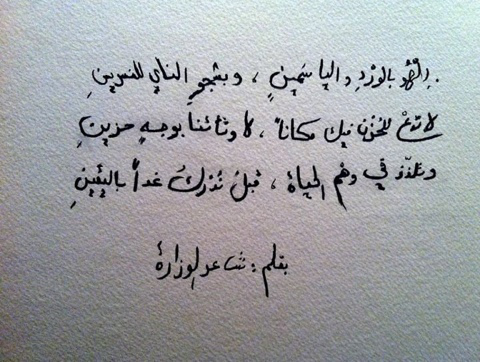 . إلهُ بالوَرْدِ والياسَمينِ ، وبشجوِ الناي للنسرينِ
لا تَدَعْ للحُزْن فيك مكاناً ، لا وتأتنا بوجهٍ حزينِ
وتلذّذ في وهْم الحياة ، قبلَ تُدْركُ غداً باليقينِ
بقلم : شاعر الوزارة